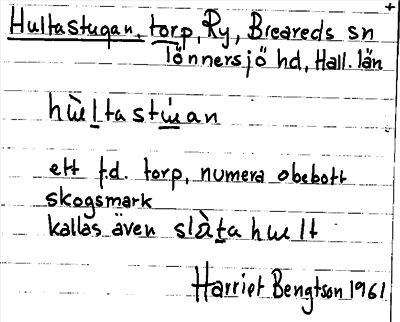 Hultastugan, torp, Ry, Breareds sn
Tönnersjö hd, Hall. län
hɯ̀ltastɯ́an
ett f.d. torp, numera obebott
skogsmark
kallas även slàtahɯlt
Harriet Bengtson 1961